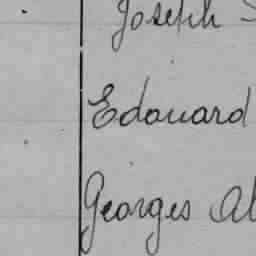 Joseph
Edouard
Georges Al